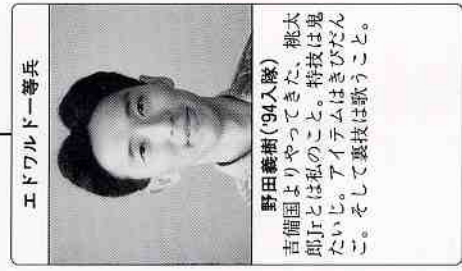 エドワルド一等兵
野田義樹('94入隊)
吉備国よりやってきた、桃太
郎Jrとは私のこと。特技は鬼
たいじ。アイテムはきびだん
ご。そして裏技は歌うこと。